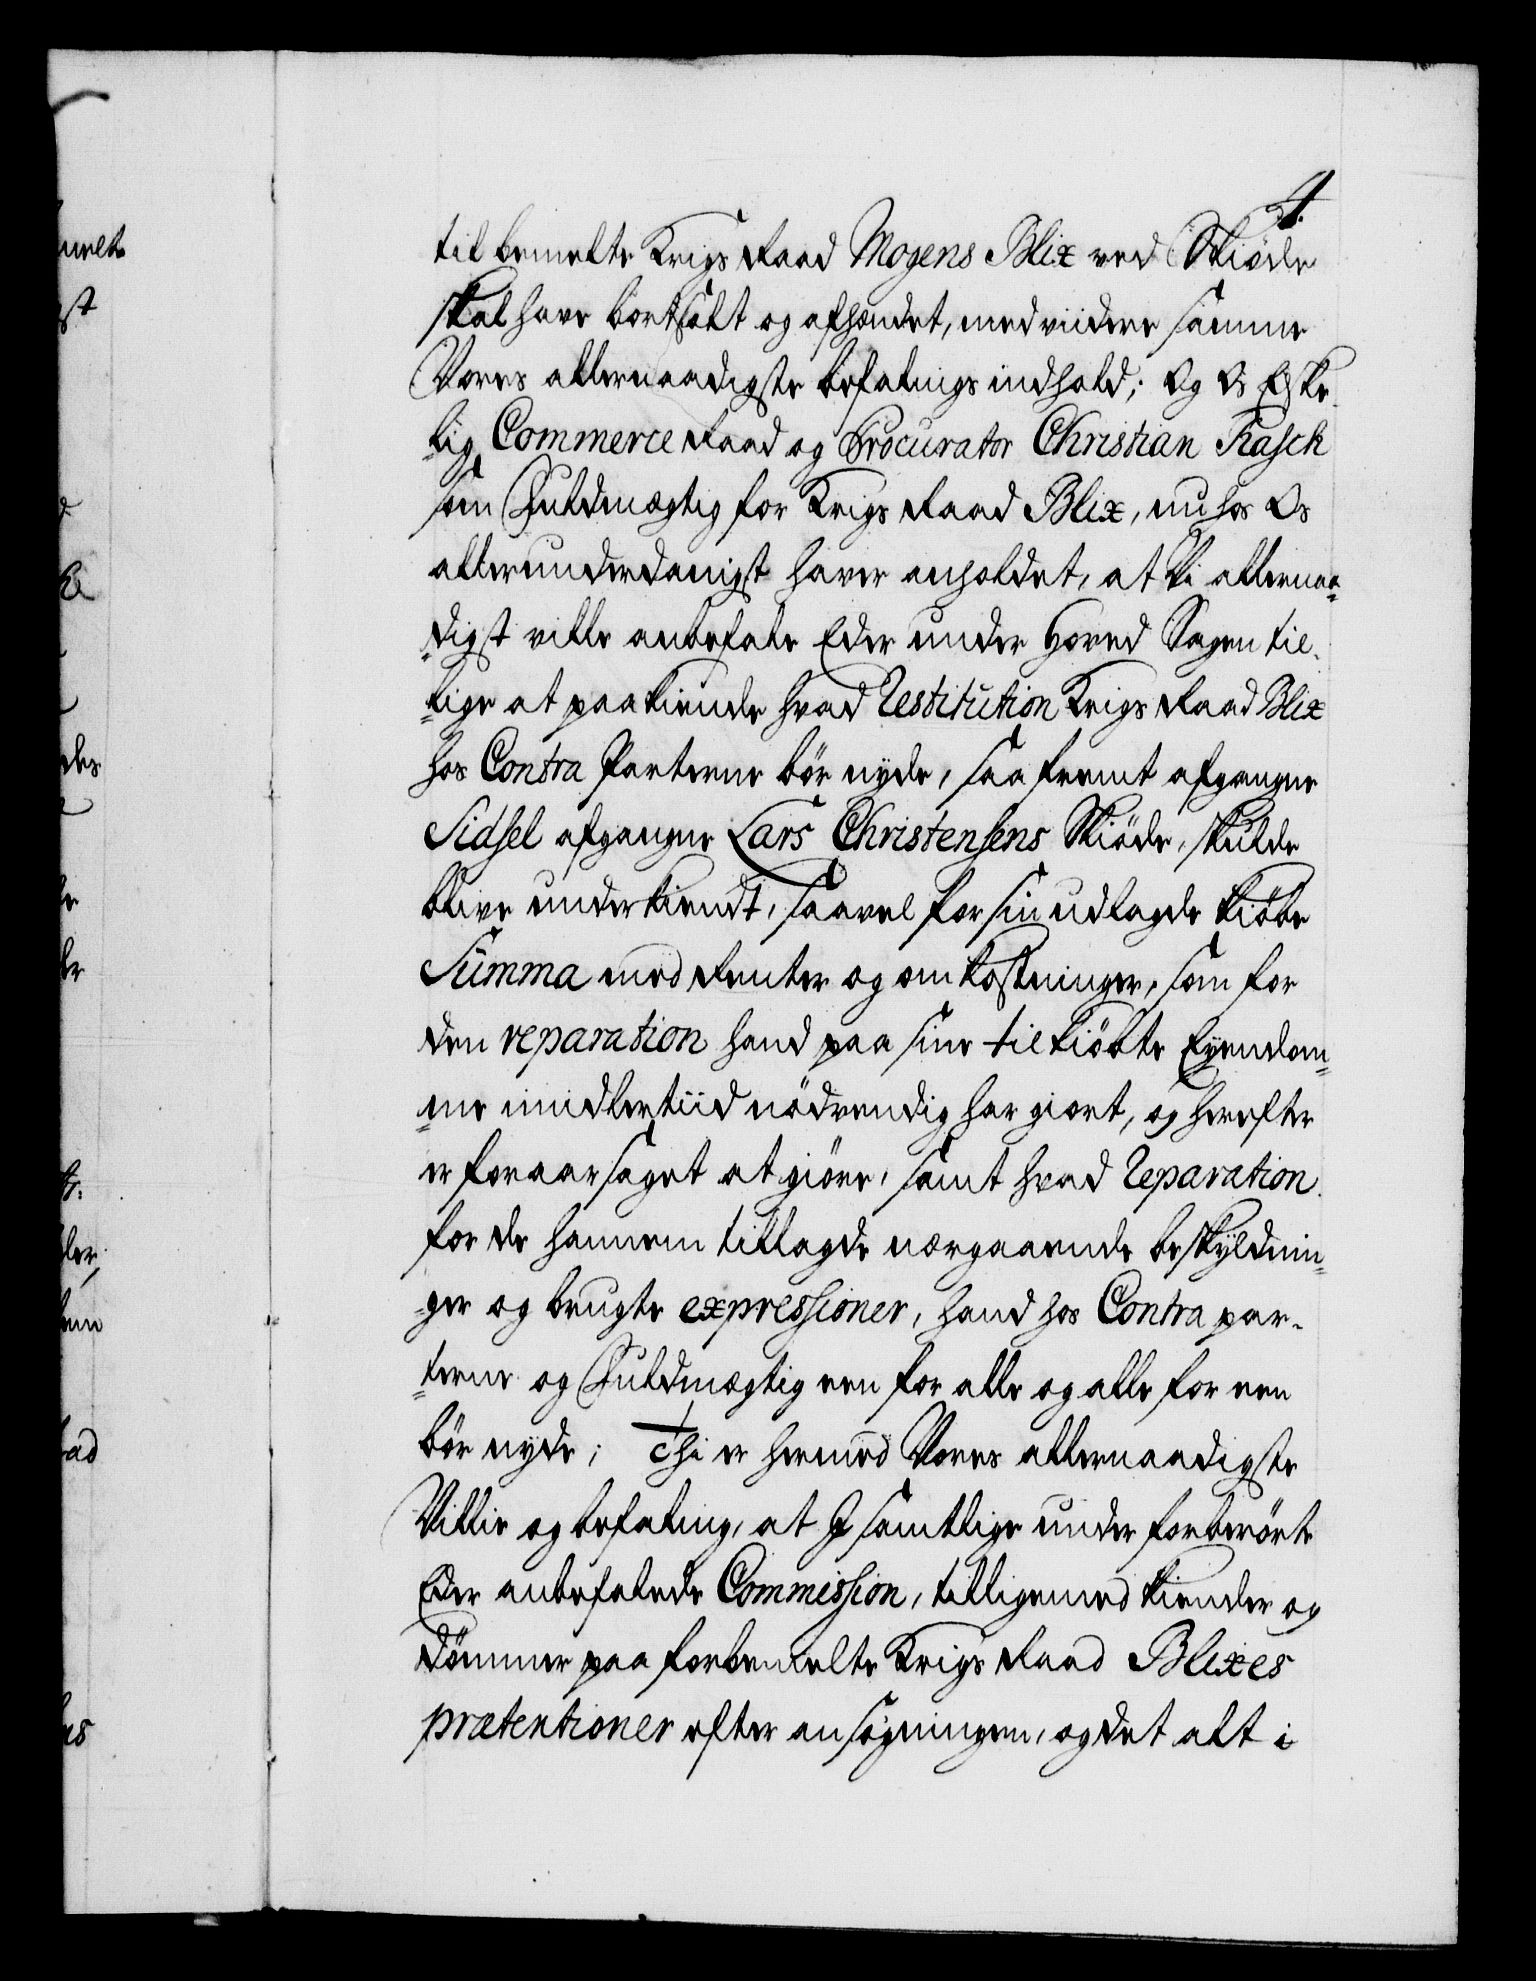 4.
til bemelte Krigs Raad Mogens Blix ved Skiöde
skal have bortsolt og afhændet, med viidere samme
Vores allernaadigste befalings indhold; Og Os Elske
=lig Commerce Raad og Procurator Christian Rasch
som Fuldmægtig for Krigs Raad Blix, nu hos Os
allerunderdanigst haver anholdet, at Vi allernaa=
=digst ville anbefale Eder under Hoved Sagen til-
=lige at paakiende hvad Restitution Krigs Raad Blix
hos Contra Parterne bör nyde, saafremt afgangne
Sidsel afgangne Lars Christensens Skiöde, skulde
blive underkiendt, saavel for sin udlagde kiöbe
Summa med Renter og omkostninger, som for
den reparation hand paa sine tilkiöbte Eyendom=
=me imidlertiid nödvendig har giort, og herefter
er foraarsaget at giöre, samt hvad Reparation
for de hannem tillagde nærgaaende beskyldnin=
=ger og brugte expressioner, hand hos Contra par-
=terne og Fuldmægtig een for alle og alle for een
bör nyde; Thi er hermed Vores allernaadigste
Villie og befaling, at I samtlige under forberörte
Eder anbefalede Commission, tilligemed kiender og
dömmer paa forbemelte Krigs Raad Blixes
prætentioner efter ansögningen, og det alt i